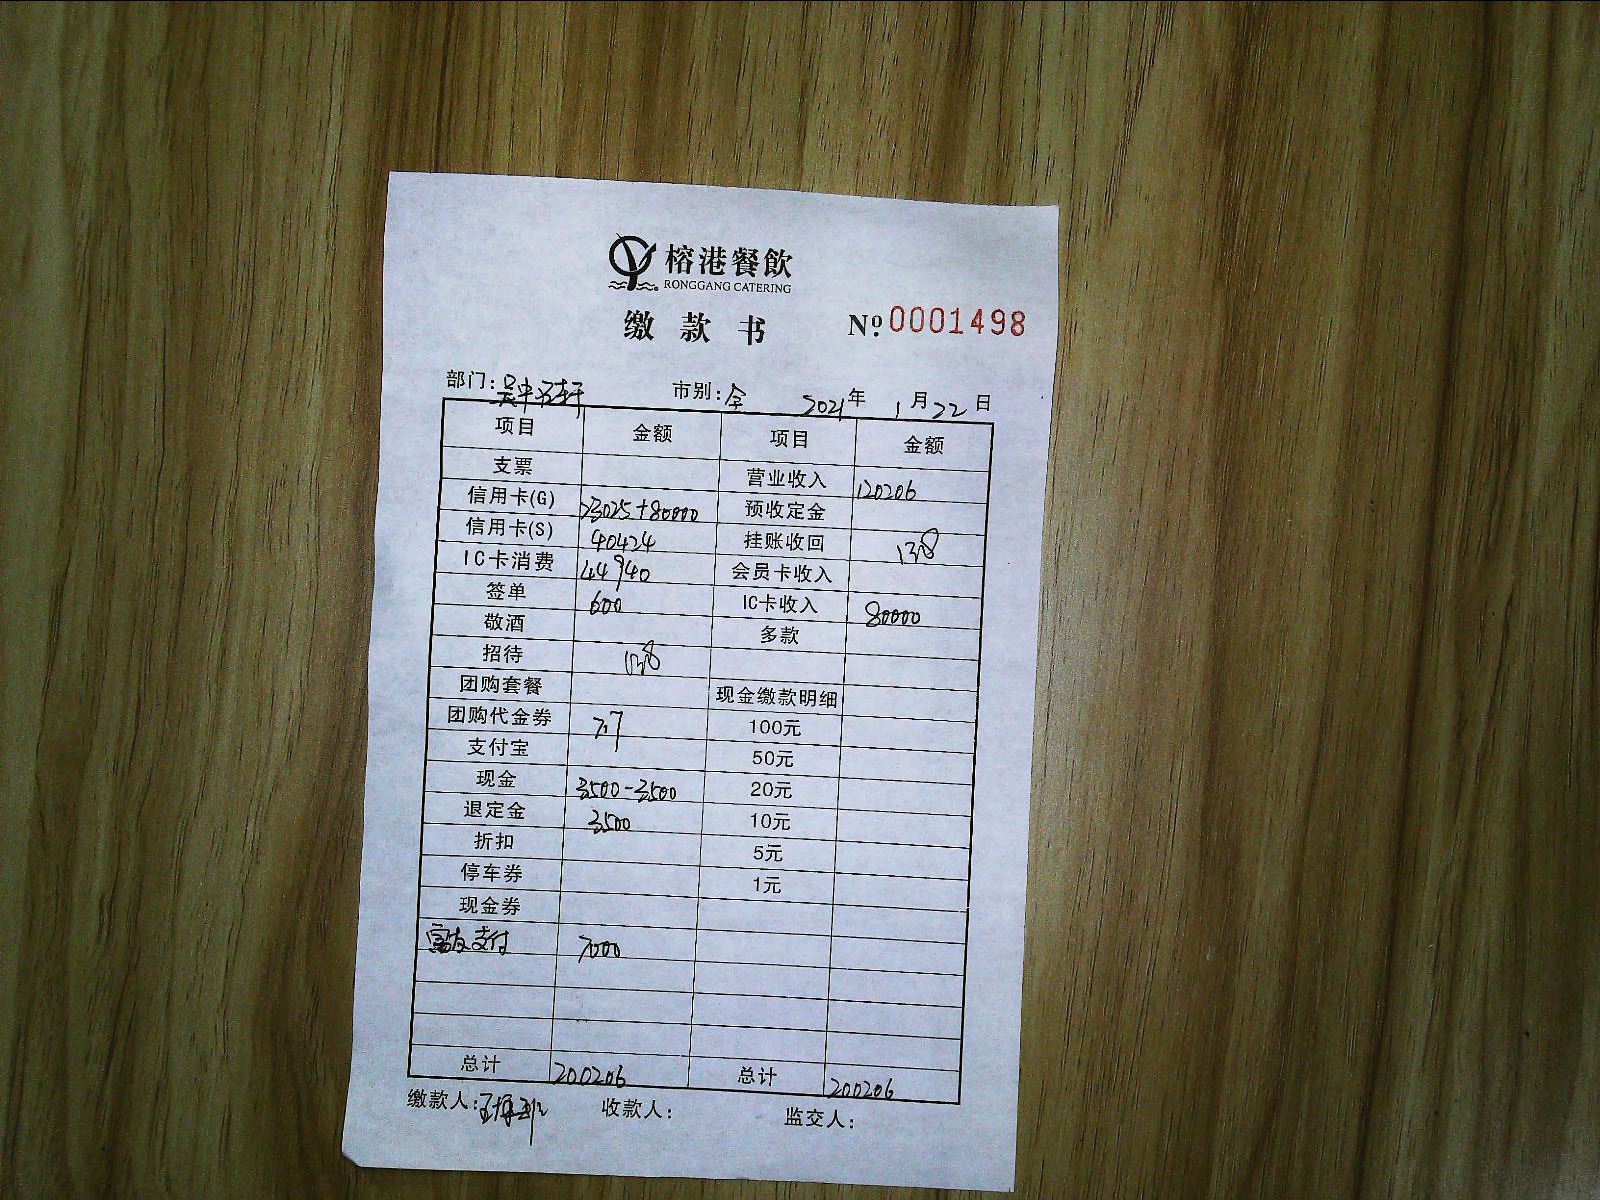 榕港餐飲
RONGGANG CATERING
缴 款 书 № 0001498
部门: 吴中 轩 市别: 全 2021 年 1 月 22 日
项目 金额 项目 金额
支票 营业收入 120206
信用卡(G) 23025+80000 预收定金
信用卡(S) 40424 挂账收回 138
IC卡消费 44940 会员卡收入
签单 600 IC卡收入 80000
敬酒 多款
招待 138
团购套餐 现金缴款明细
团购代金券 100元
支付宝 50元
现金 3500-3500 20元
退定金 3500 10元
折扣 5元
停车券 1元
现金券
富友支付 7000
总计 200206 总计 200206
缴款人: 收款人: 监交人: